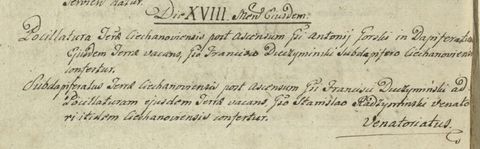 Die XVIII. Mens Ejusdem.
Pocillatura Terræ Ciechanoviensis post Ascensum Antonij Gorski in Dapiferatum
Ejusdem Terræ vacans, Francisco Duczyminski Subdapifero Ciechanoviensi
confertur.
Subdapiferatus Terræ Ciechanoviensis post Ascensum Francisci Duczyminski ad
Pocillaturam ejusdem Terræ vacans, Stanislao Radzyminski Venato
ri itidem Ciechanoviensi confertur.
Venatoriatus